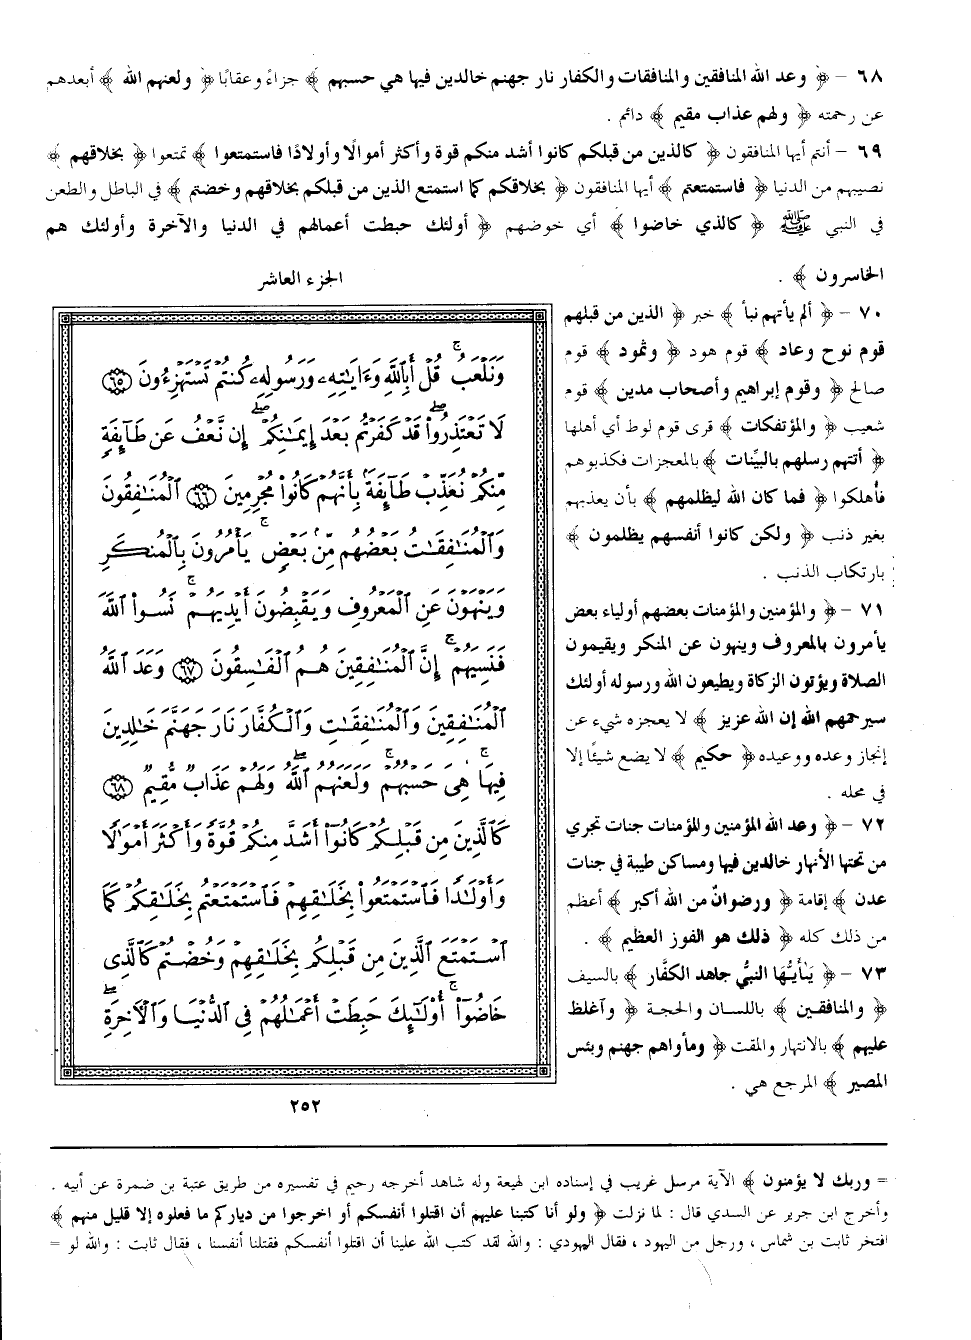 ٦٨ – ﴿ وعد الله المنافقين والمنافقات والكفار نار جهنم خالدين فيها هي حسبهم ﴾ جزاءً وعقابًا ﴿ ولعنهم الله ﴾ أبعدهم
عن رحمته ﴿ ولهم عذاب مقيم ﴾ دائم .
٦٩ – أنتم أيها المنافقون ﴿ كالذين من قبلكم كانوا أشد منكم قوة وأكثر أموالًا وأولادًا فاستمتعوا ﴾ تمتعوا ﴿ بخلاقهم ﴾
نصيبهم من الدنيا ﴿ فاستمتعتم ﴾ أيها المنافقون ﴿ بخلاقكم كما استمتع الذين من قبلكم بخلاقهم وخضتم ﴾ في الباطل والطعن
في النبي ﷺ ﴿ كالذي خاضوا ﴾ أي خوضهم ﴿ أولئك حبطت أعمالهم في الدنيا والآخرة وأولئك هم
الخاسرون ﴾ .
٧٠ – ﴿ ألم يأتهم نبأ ﴾ خبر ﴿ الذين من قبلهم
قوم نوح وعاد ﴾ قوم هود ﴿ وثمود ﴾ قوم
صالح ﴿ وقوم إبراهيم وأصحاب مدين ﴾ قوم
شعيب ﴿ والمؤتفكات ﴾ قرى قوم لوط أي أهلها
﴿ أتتهم رسلهم بالبيّنات ﴾ بالمعجزات فكذبوهم
فأهلكوا ﴿ فما كان الله ليظلمهم ﴾ بأن يعذبهم
بغير ذنب ﴿ ولكن كانوا أنفسهم يظلمون ﴾
بارتكاب الذنب .
٧١ – ﴿ والمؤمنين والمؤمنات بعضهم أولياء بعض
يأمرون بالمعروف وينهون عن المنكر ويقيمون
الصلاة ويؤتون الزكاة ويطيعون الله ورسوله أولئك
سيرحمهم الله إن الله عزيز ﴾ لا يعجزه شيء عن
إنجاز وعده ووعيده ﴿ حكيم ﴾ لا يضع شيئًا إلا
في محله .
٧٢ – ﴿ وعد الله المؤمنين والمؤمنات جنات تجري
من تحتها الأنهار خالدين فيها ومساكن طيبة في جنات
عدن ﴾ إقامة ﴿ ورضوانٌ من الله أكبر ﴾ أعظم
من ذلك كله ﴿ ذلك هو الفوز العظيم ﴾ .
٧٣ – ﴿ يَـٰأَيُّهَا النبيُّ جاهد الكفَّار ﴾ بالسيف
﴿ والمنافقين ﴾ باللسان والحجة ﴿ وآغلظ
عليهم ﴾ بالانتهار والمقت ﴿ ومأواهم جهنم وبئس
المصير ﴾ المرجع هي .
الجزء العاشر
وَنَلْعَبُ ۚ قُلْ أَبِٱللَّهِ وَءَايَـٰتِهِۦ وَرَسُولِهِۦ كُنتُمْ تَسْتَهْزِءُونَ ﴿٦٥﴾
لَا تَعْتَذِرُوا۟ ۖ قَدْ كَفَرْتُم بَعْدَ إِيمَـٰنِكُمْ ۖ إِن نَّعْفُ عَن طَآئِفَةٍ
مِّنكُمْ نُعَذِّبْ طَآئِفَةً بِأَنَّهُمْ كَانُوا۟ مُجْرِمِينَ ﴿٦٦﴾ ٱلْمُنَـٰفِقُونَ
وَٱلْمُنَـٰفِقَـٰتُ بَعْضُهُم مِّنۢ بَعْضٍ ۚ يَأْمُرُونَ بِٱلْمُنكَرِ
وَيَنْهَوْنَ عَنِ ٱلْمَعْرُوفِ وَيَقْبِضُونَ أَيْدِيَهُمْ ۚ نَسُوا۟ ٱللَّهَ
فَنَسِيَهُمْ ۚ إِنَّ ٱلْمُنَـٰفِقِينَ هُمُ ٱلْفَـٰسِقُونَ ﴿٦٧﴾ وَعَدَ ٱللَّهُ
ٱلْمُنَـٰفِقِينَ وَٱلْمُنَـٰفِقَـٰتِ وَٱلْكُفَّارَ نَارَ جَهَنَّمَ خَـٰلِدِينَ
فِيهَا ۚ هِىَ حَسْبُهُمْ ۚ وَلَعَنَهُمُ ٱللَّهُ ۖ وَلَهُمْ عَذَابٌ مُّقِيمٌ ﴿٦٨﴾
كَٱلَّذِينَ مِن قَبْلِكُمْ كَانُوٓا۟ أَشَدَّ مِنكُمْ قُوَّةً وَأَكْثَرَ أَمْوَٰلًا
وَأَوْلَـٰدًا فَٱسْتَمْتَعُوا۟ بِخَلَـٰقِهِمْ فَٱسْتَمْتَعْتُم بِخَلَـٰقِكُمْ كَمَا
ٱسْتَمْتَعَ ٱلَّذِينَ مِن قَبْلِكُم بِخَلَـٰقِهِمْ وَخُضْتُمْ كَٱلَّذِى
خَاضُوٓا۟ ۚ أُو۟لَـٰٓئِكَ حَبِطَتْ أَعْمَـٰلُهُمْ فِى ٱلدُّنْيَا وَٱلْـَٔاخِرَةِ ۖ
٢٥٢
= وربك لا يؤمنون ﴾ الآية مرسل غريب في إسناده ابن لهيعة وله شاهد أخرجه رحيم في تفسيره من طريق عتبة بن ضمرة عن أبيه .
وأخرج ابن جرير عن السدي قال : لما نزلت ﴿ ولو أنا كتبنا عليهم أن اقتلوا أنفسكم أو اخرجوا من دياركم ما فعلوه إلا قليل منهم ﴾
افتخر ثابت بن شماس ، ورجل من اليهود ، فقال اليهودي : والله لقد كتب الله علينا أن اقتلوا أنفسكم فقتلنا أنفسنا ، فقال ثابت : والله لو =